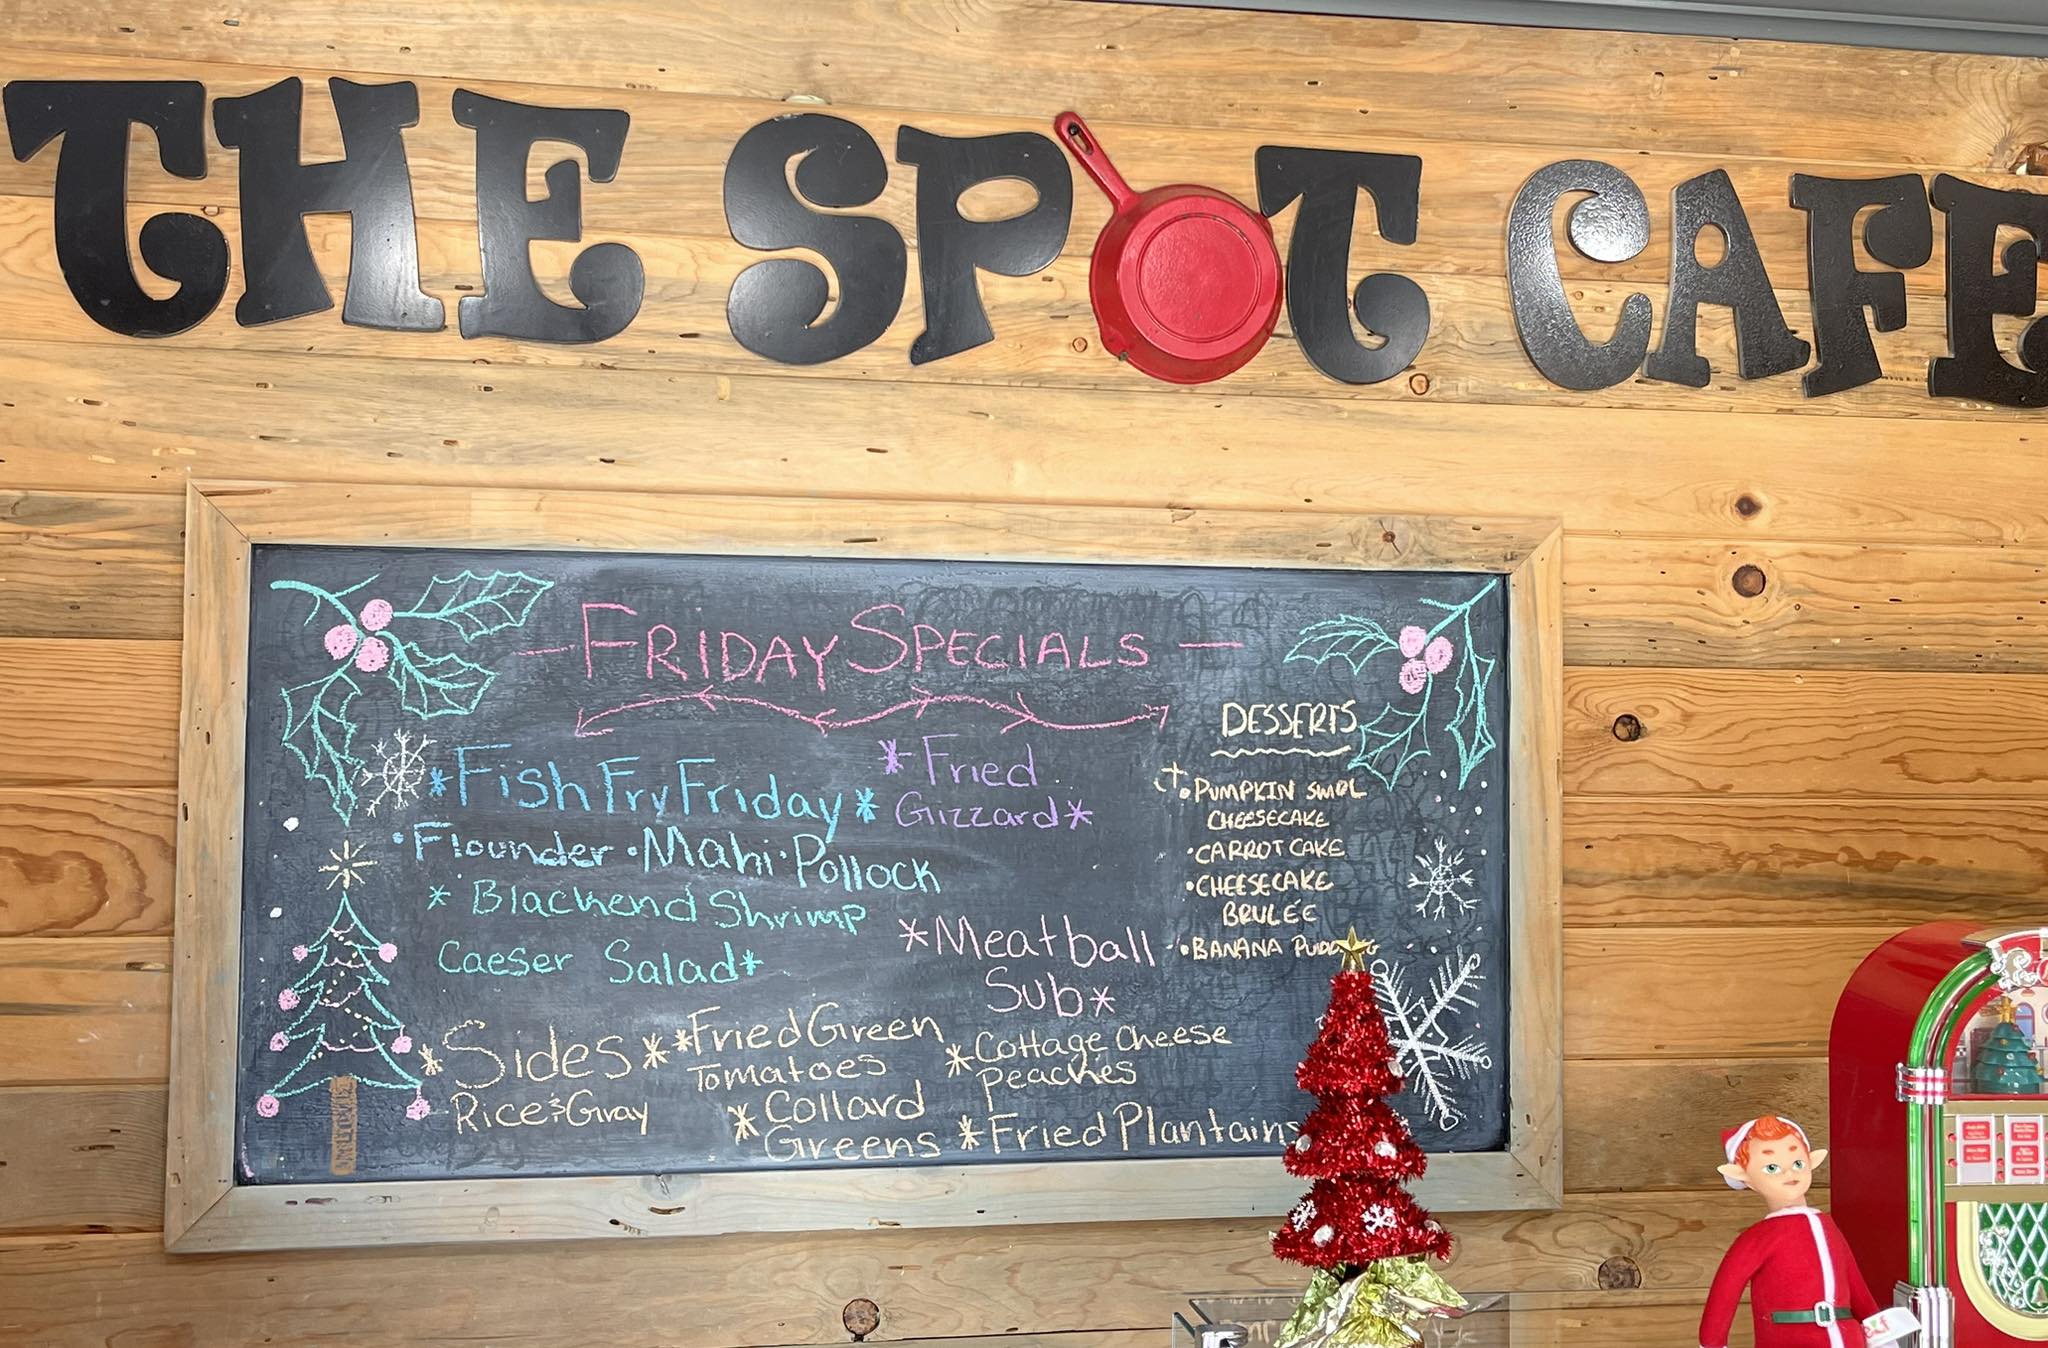 THE SPOT CAFE
FRIDAY SPECIALS
*Fish Fry Friday*
• Flounder • Mahi • Pollock
* Blackend Shrimp
Caeser Salad*
*Fried
Gizzard*
*Meatball
Sub*
*Sides*
Rice & Gravy
*Fried Green
Tomatoes
*Collard
Greens
*Cottage Cheese
Peaches
*Fried Plantains
DESSERTS
• PUMPKIN SWIRL
CHEESECAKE
• CARROT CAKE
• CHEESECAKE
BRULÉE
• BANANA PUDDING